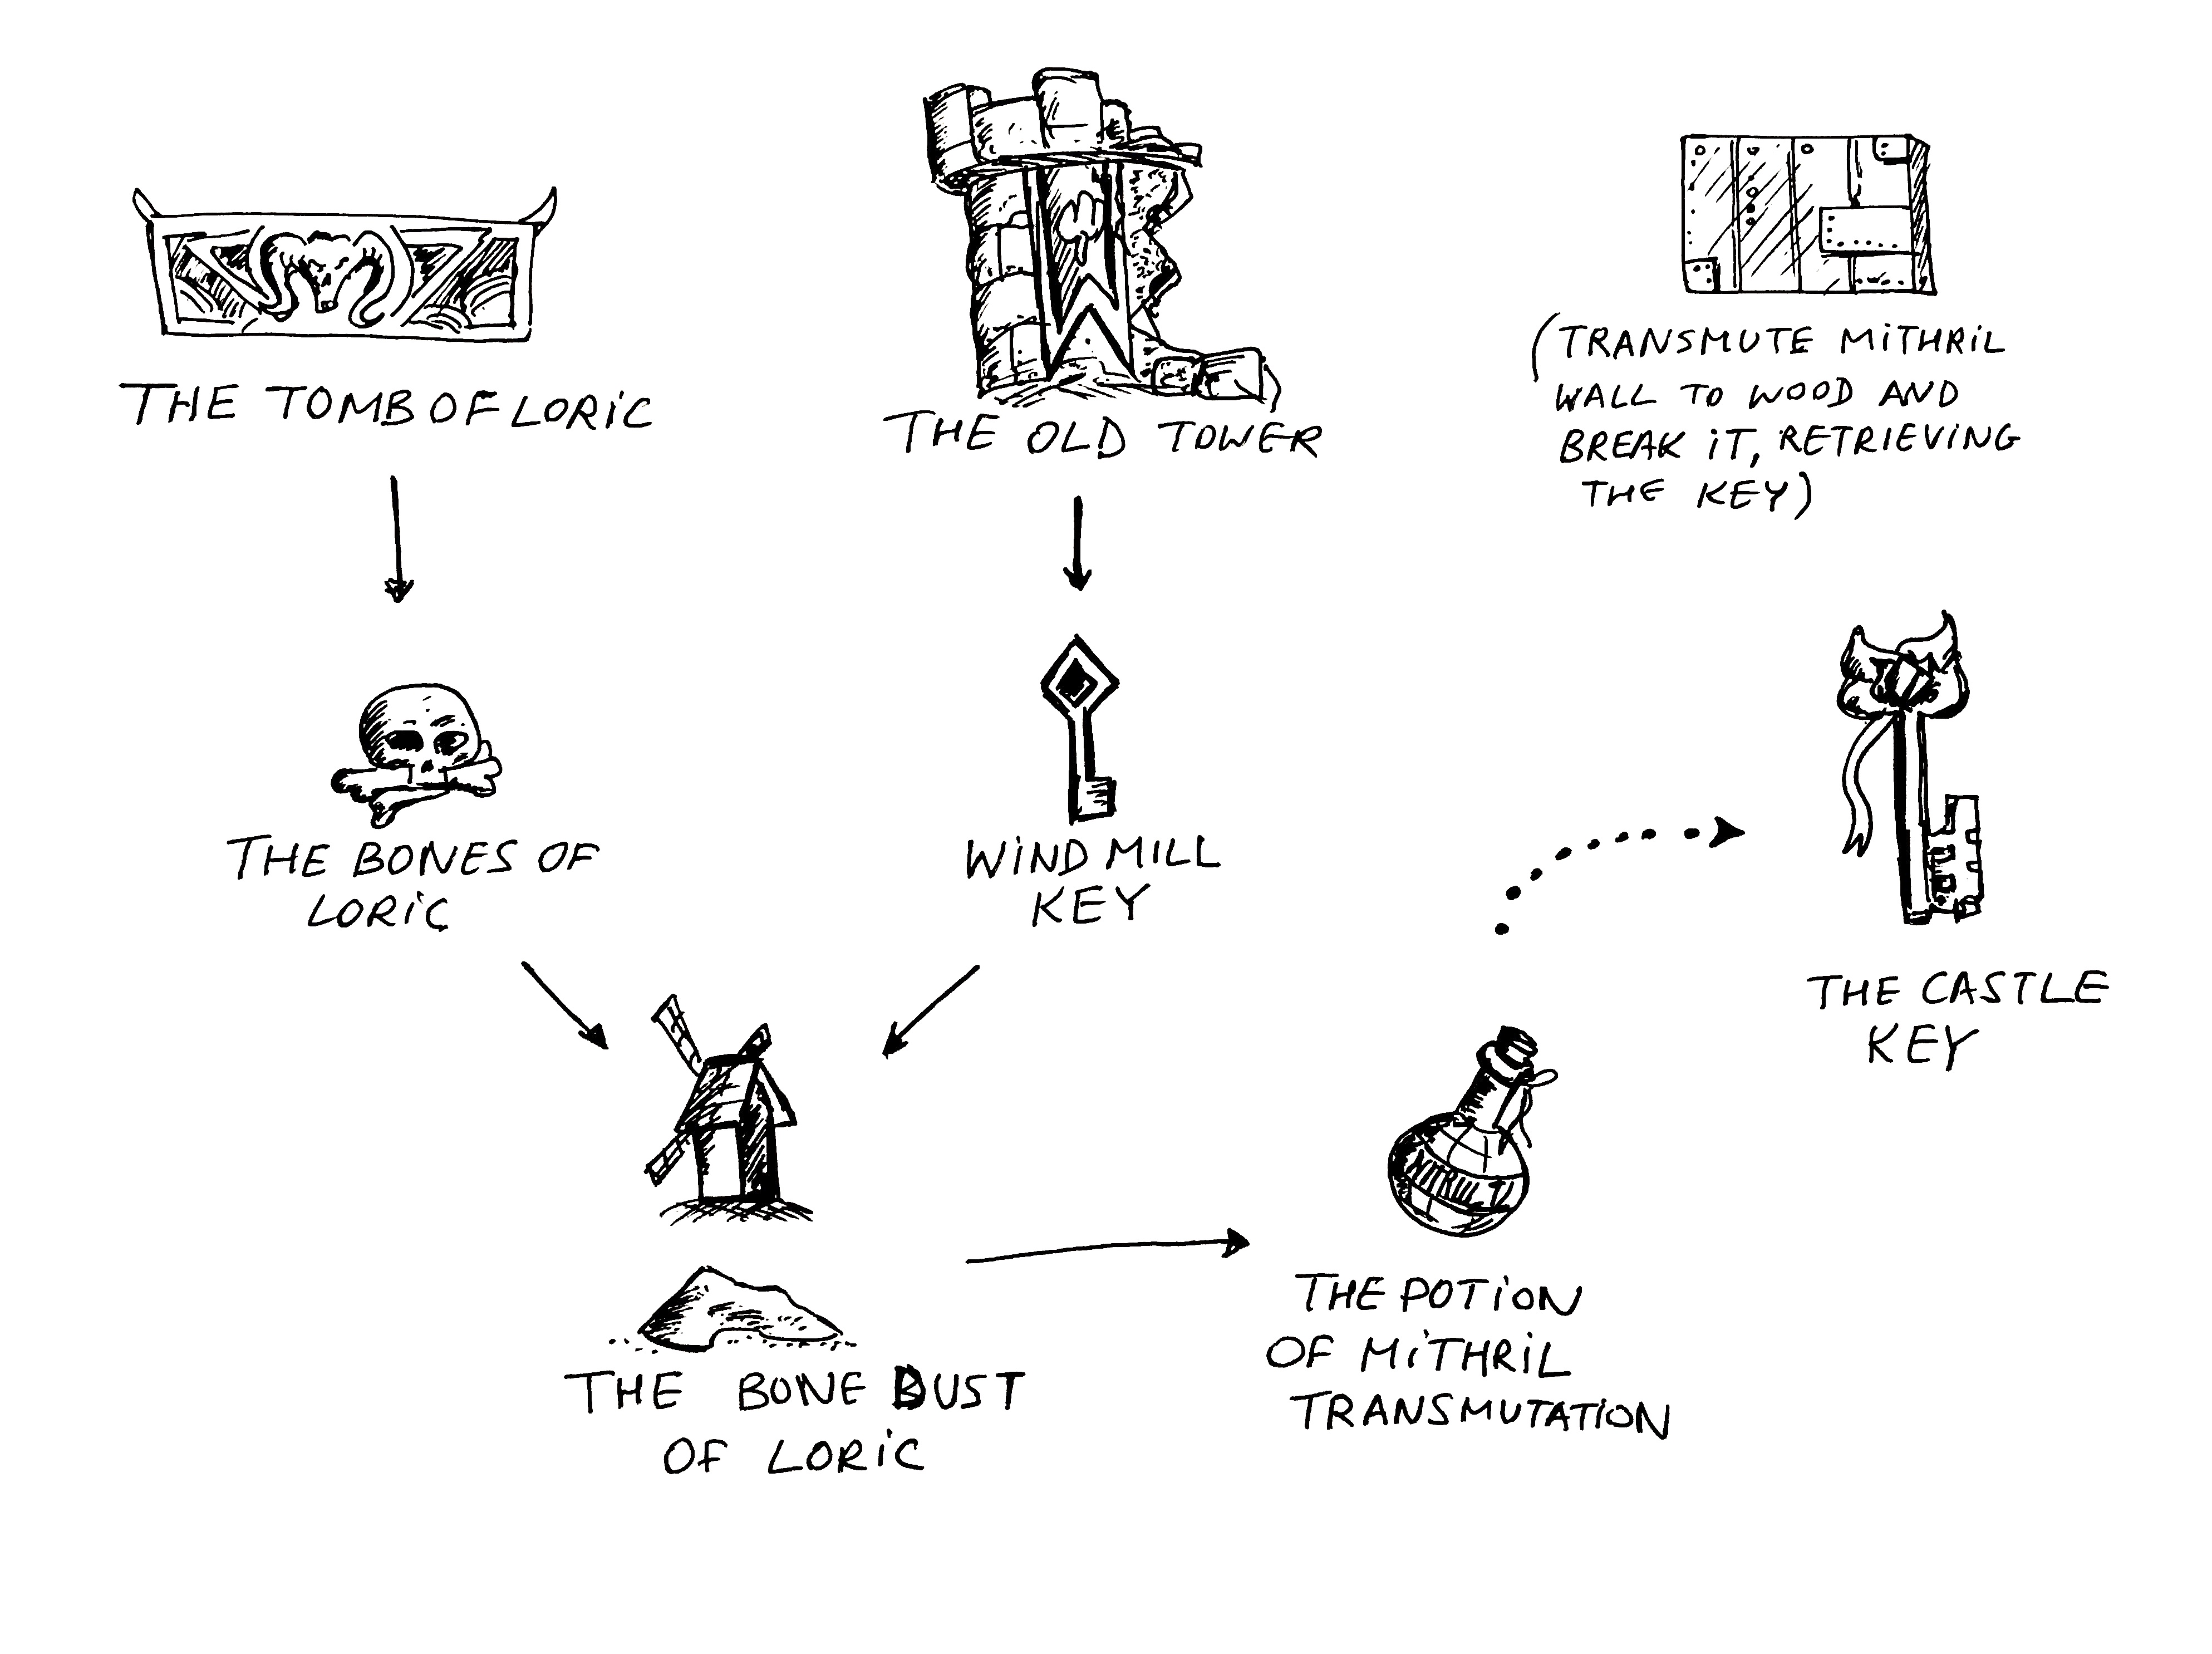 THE TOMB OF LORiC
THE OLD TOWER
(TRANSMUTE MiTHRiL
WALL TO WOOD AND
BREAK iT, RETRiEViNG
THE KEY)
THE BONES OF
LORiC
WiND MILL
KEY
THE CASTLE
KEY
THE BONE DUST
OF LORiC
THE POTiON
OF MiTHRiL
TRANSMUTATiON